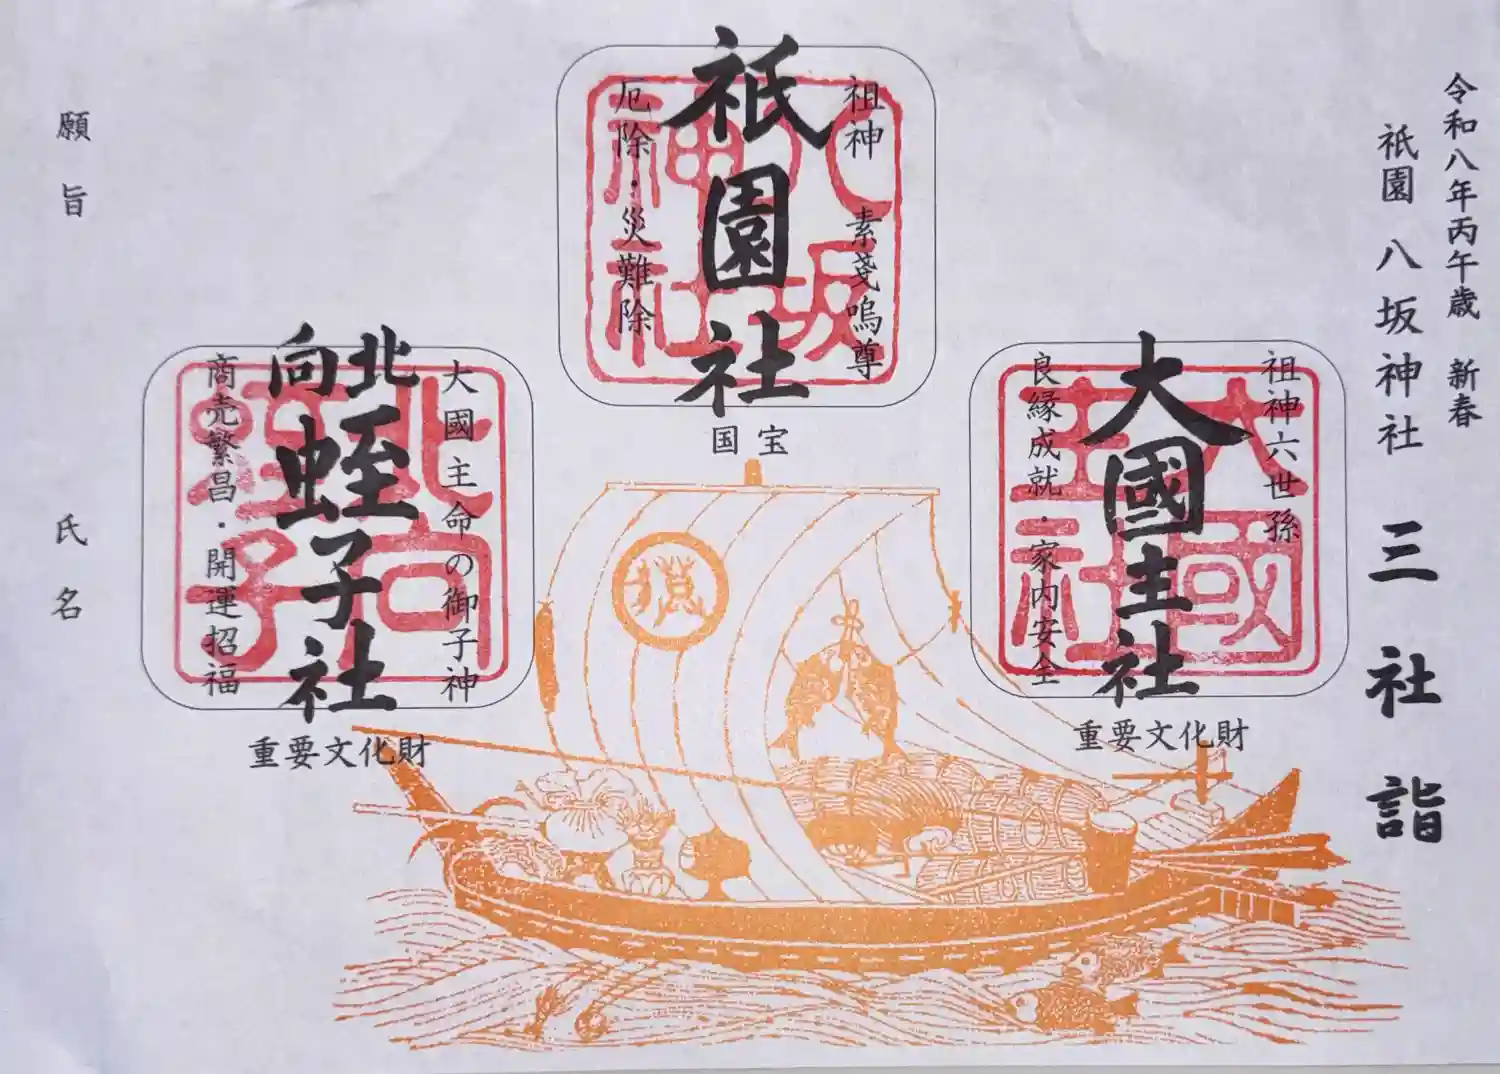 令和八年丙午歳 新春
祇園 八坂神社 三社詣
祖神六世孫
大國主社
良縁成就・家内安全
大國主社
重要文化財
祖神 素戔嗚尊
祇園社
厄除・災難除
八坂神社
国宝
大國主命の御子神
北向蛭子社
商売繁昌・開運招福
北向蛭子
重要文化財
願旨
氏名